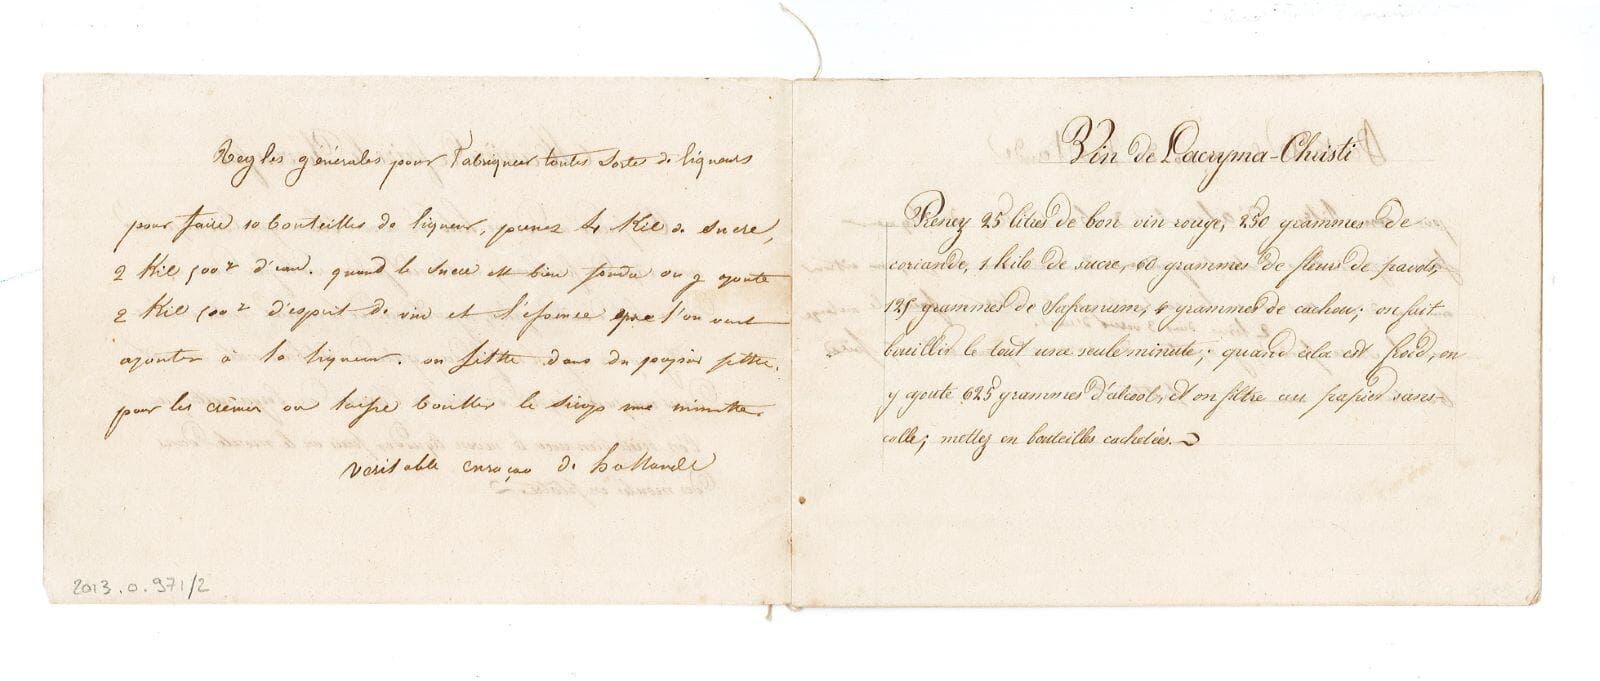 Regles générales pour Fabriquer toutes Sorte de liqueurs
pour faire 10 bouteilles de liqueur, prenez 4 Kil de Sucre,
2 Kil 500 gr d'eau. quand le Sucre est bien fondu on y ajoute
2 Kil 500 gr d'esprit de vin et l'essence que l'on veut
ajouter à la liqueur. on filtre dans du papier filtre.
pour les crèmes on laisse bouiller le Sirop une minutte.
veritable curaçao de hollande
2013.0.971/2
Vin de Lacryma-Christi
Prenez 25 litres de bon vin rouge, 250 grammes de
coriande, 1 kilo de sucre, 60 grammes de fleurs de pavots,
125 grammes de Safranum, 4 grammes de cachou; on fait
bouillir le tout une seule minute; quand cela est froid, on
y ajoute 625 grammes d'alcool, et on filtre au papier sans-
colle; mettez en bouteilles cachetées.